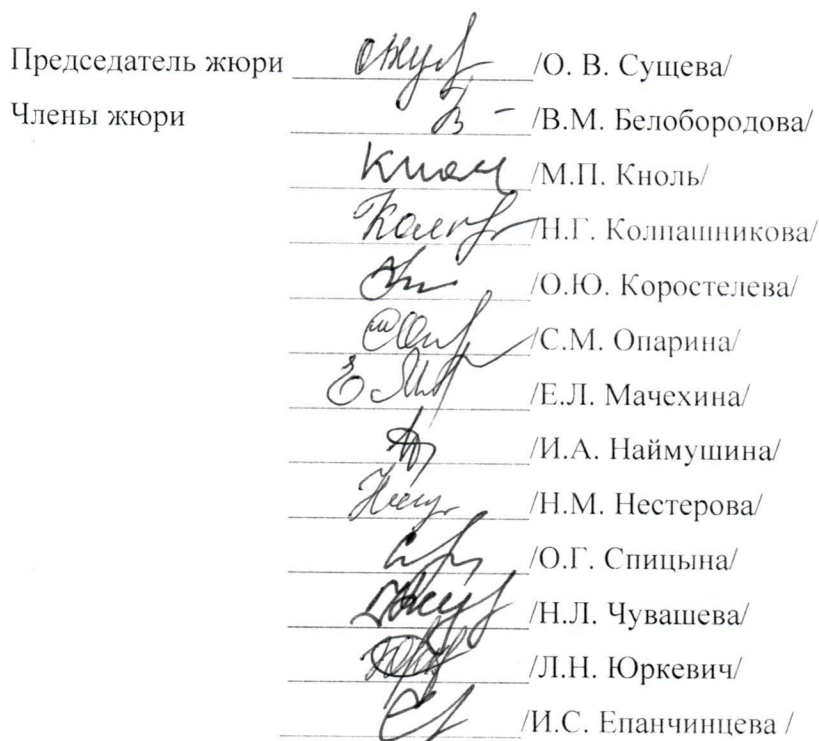 Председатель жюри /О. В. Сущева/
Члены жюри /В.М. Белобородова/
/М.П. Кноль/
/Н.Г. Колпашникова/
/О.Ю. Коростелева/
/С.М. Опарина/
/Е.Л. Мачехина/
/И.А. Наймушина/
/Н.М. Нестерова/
/О.Г. Спицына/
/Н.Л. Чувашева/
/Л.Н. Юркевич/
/И.С. Епанчинцева /